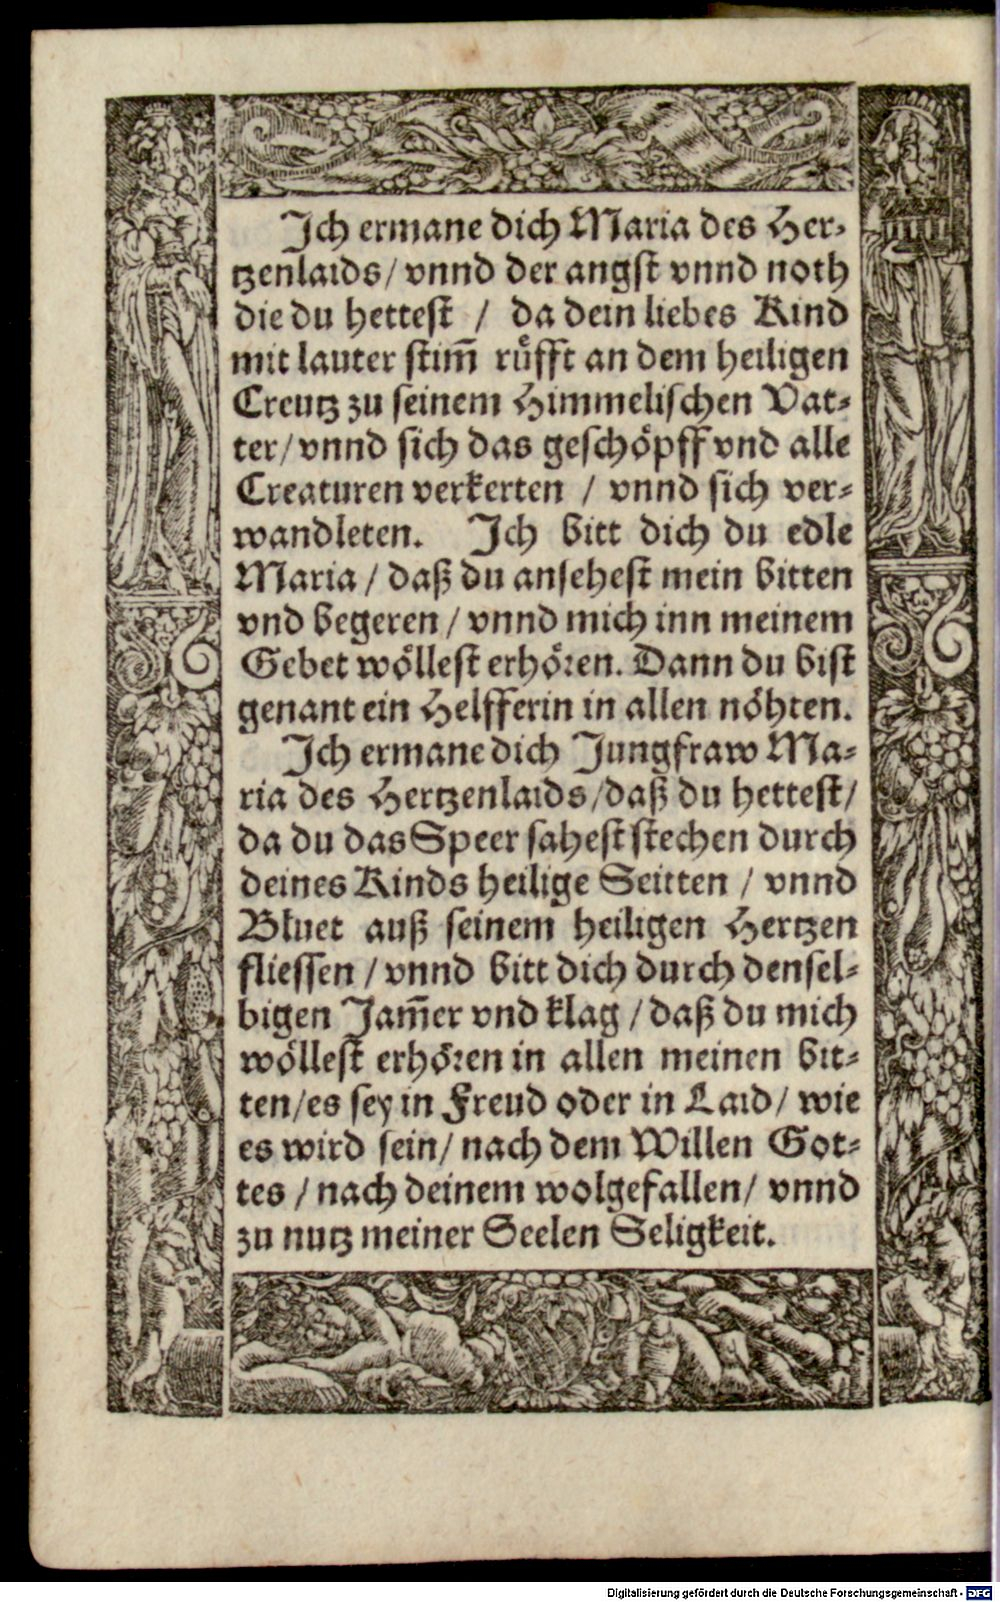 Ich ermane dich Maria des Her-
tzenlaids/ vnnd der angst vnnd noth
die du hettest / da dein liebes Kind
mit lauter stim̃ rüfft an dem heiligen
Creutz zu seinem Himmelischen Vat-
ter/ vnnd sich das geschöpff vnd alle
Creaturen verkerten / vnnd sich ver-
wandleten. Ich bitt dich du edle
Maria / daß du ansehest mein bitten
vnd begeren / vnnd mich inn meinem
Gebet wöllest erhören. Dann du bist
genant ein Helfferin in allen nöhten.
Ich ermane dich Jungfraw Ma-
ria des Hertzenlaids/daß du hettest/
da du das Speer sahest stechen durch
deines Kinds heilige Seitten / vnnd
Bluet auß seinem heiligen Hertzen
fliessen / vnnd bitt dich durch densel-
bigen Jam̃er vnd klag / daß du mich
wöllest erhören in allen meinen bit-
ten/es sey in Freud oder in Laid/ wie
es wird sein/ nach dem Willen Got-
tes / nach deinem wolgefallen/ vnnd
zu nutz meiner Seelen Seligkeit.
Digitalisierung gefördert durch die Deutsche Forschungsgemeinschaft - DFG